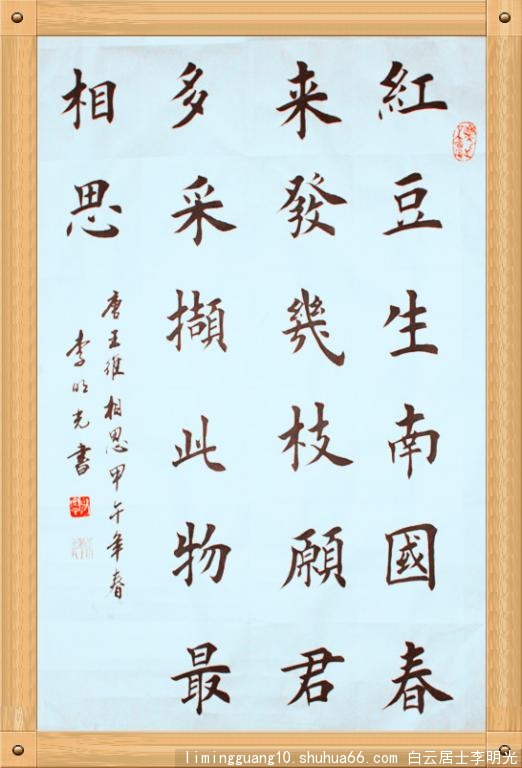 紅豆生南國春
来發幾枝願君
多采擷此物最
相思
唐王維相思甲午年春
李明光書
limingguang10.shuhua66.com 白云居士李明光